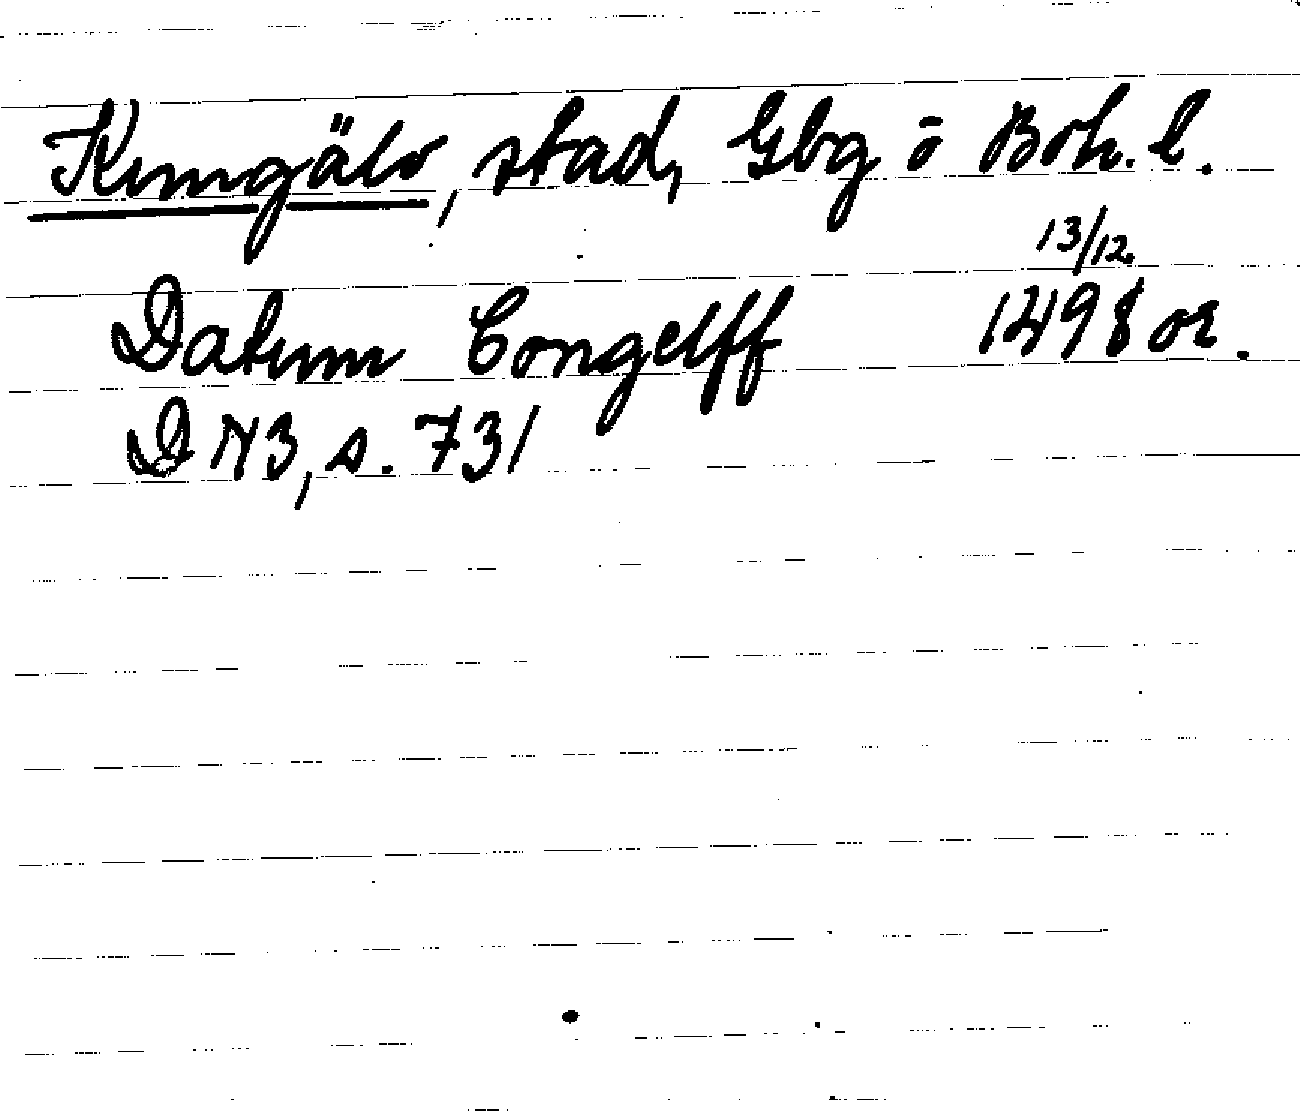 Kungälv, stad, Gbg o Boh. l.
13/12.
Datum Congelff 1498 or.
DN3, s. 731